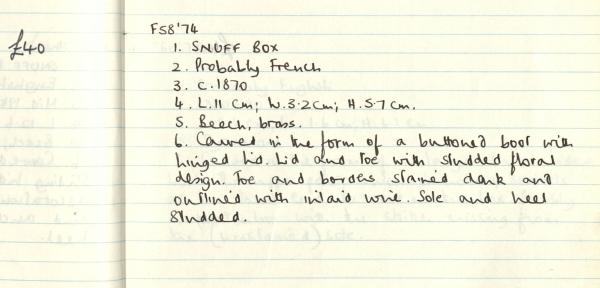 £40
F58'74
1. SNUFF BOX
2. Probably French
3. c.1870
4. L.11 cm; W.3.2cm; H.5.7 cm.
5. Beech, brass.
6. Carved in the form of a buttoned boot with
hinged lid. Lid and toe with studded floral
design. Toe and borders stained dark and
outlined with inlaid wire. Sole and heel
studded.